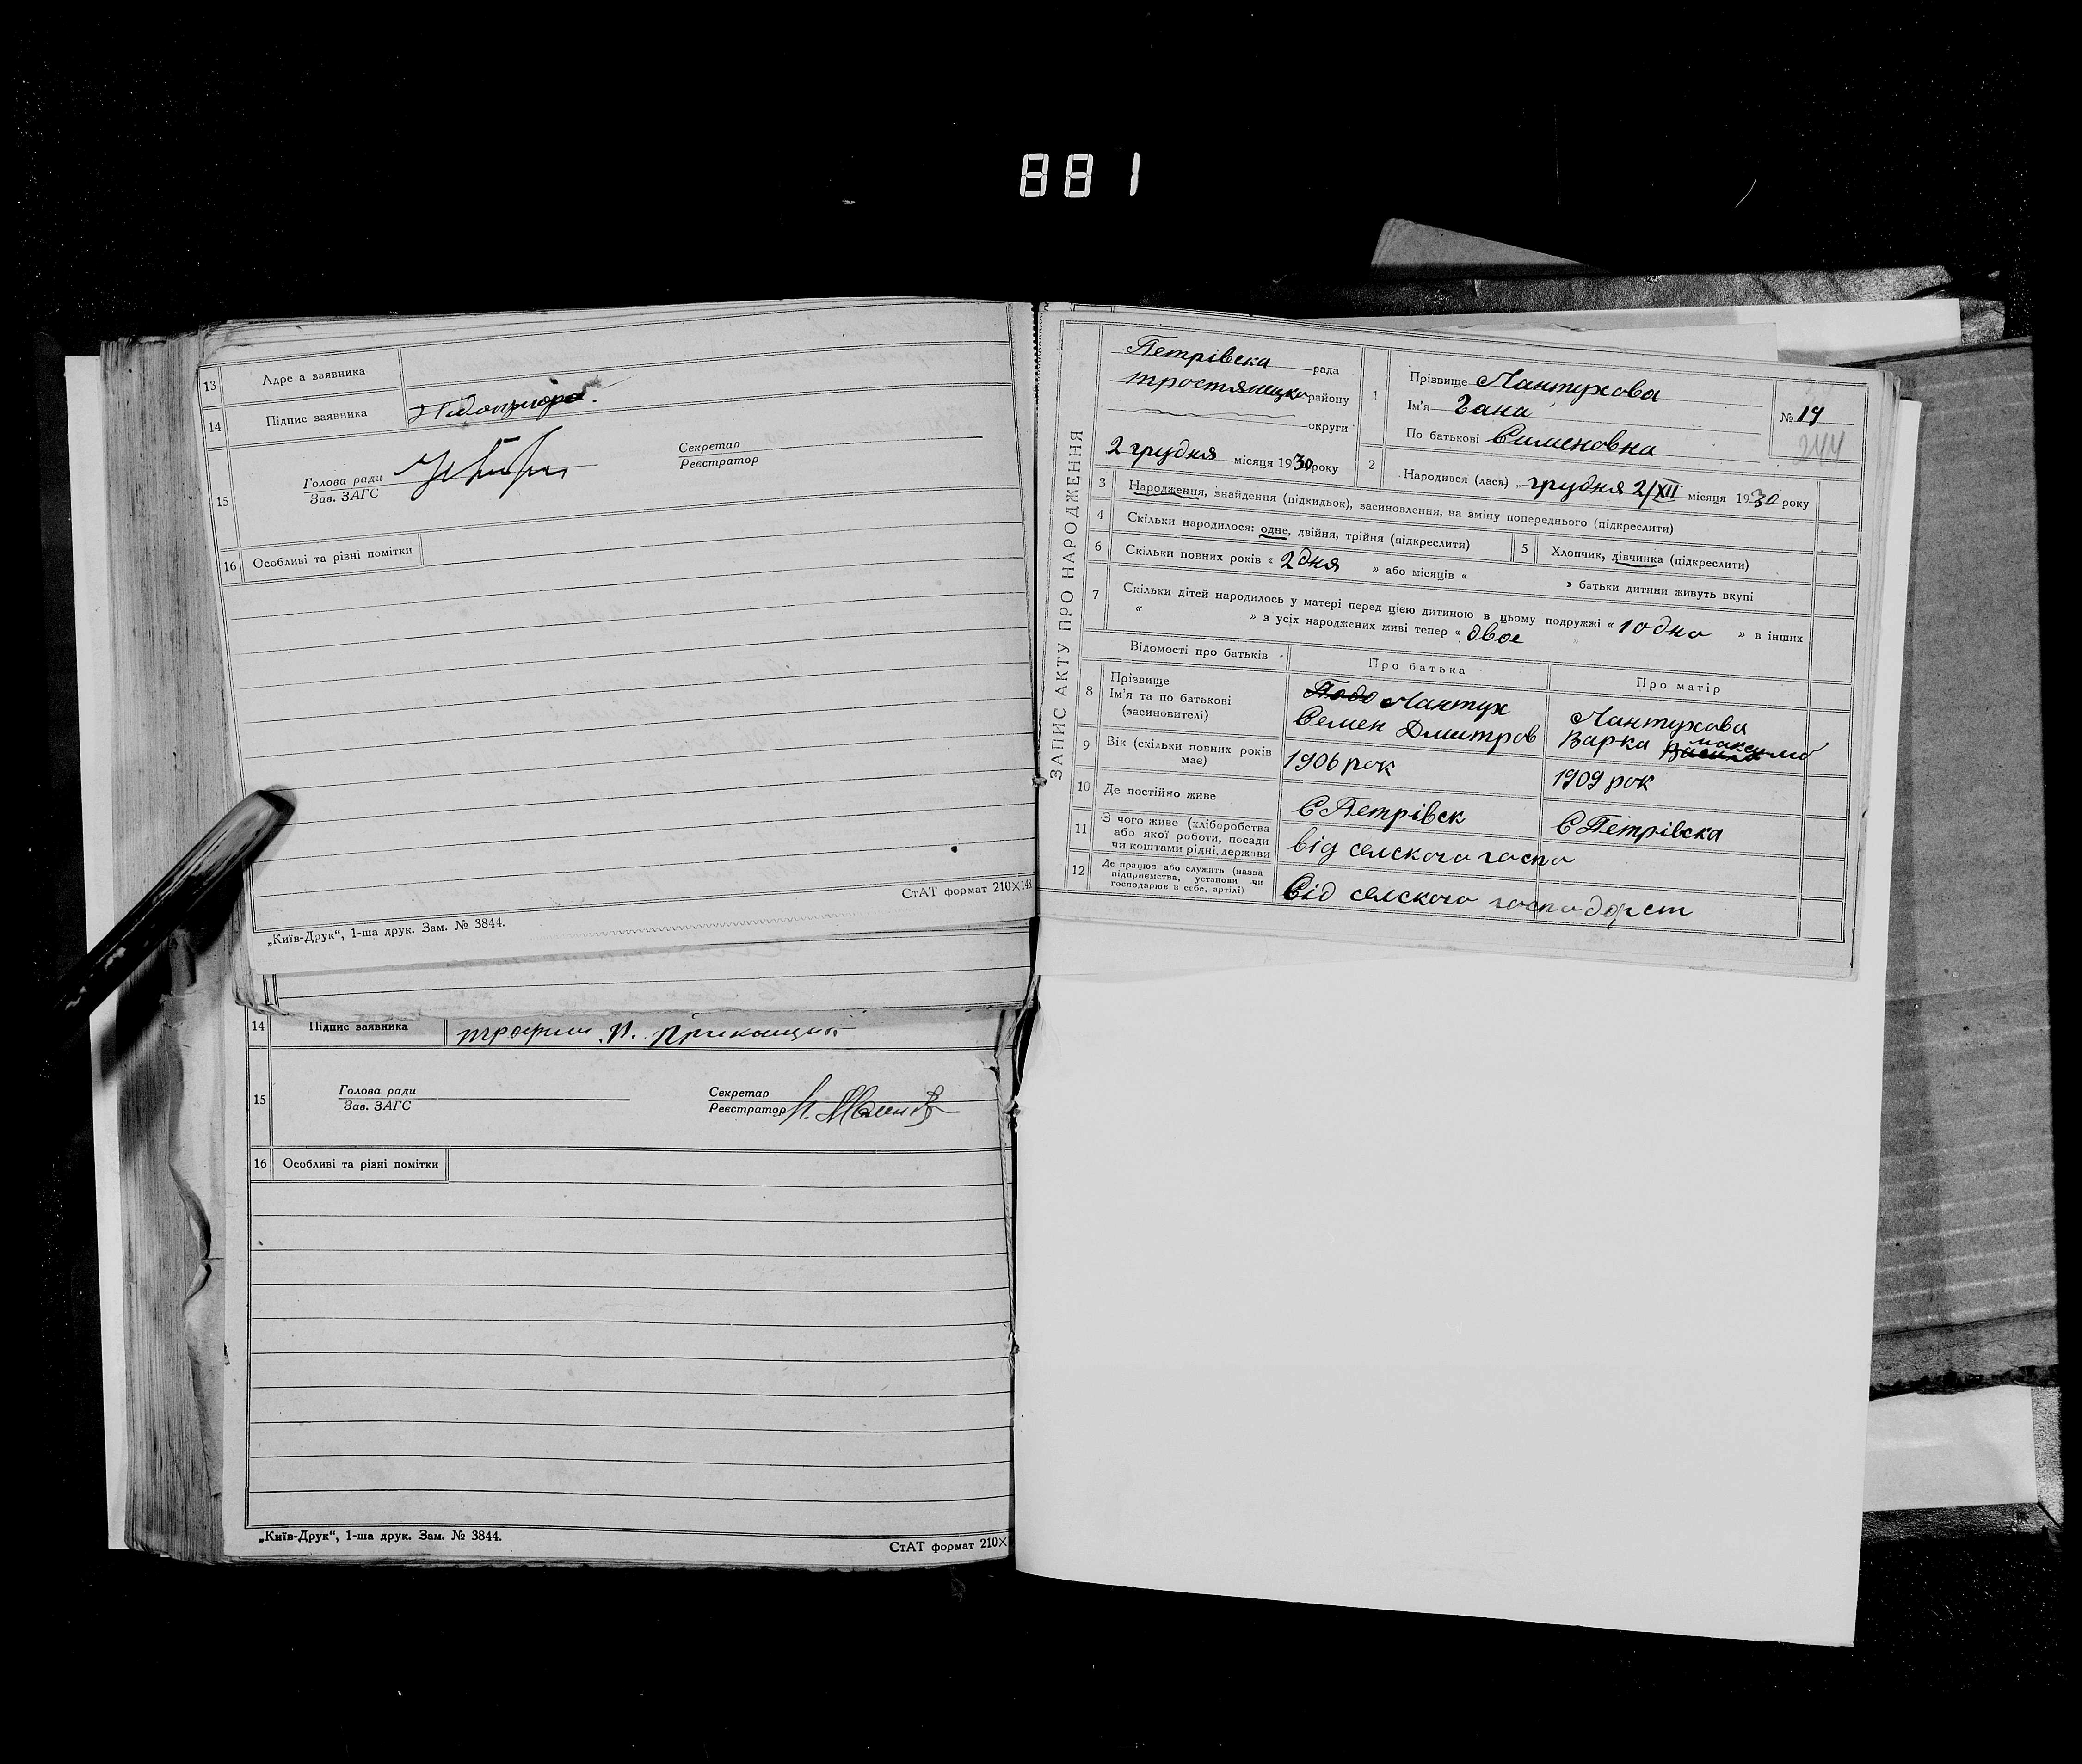 881
13 Адре а заявника
14 Підпис заявника
15 Голова ради
Зав. ЗАГС
Секретар
Реєстратор
16 Особливі та різні помітки
СтАТ формат 210×148
„Київ-Друк“, 1-ша друк. Зам. № 3844.
14 Підпис заявника
15 Голова ради
Зав. ЗАГС
Секретар
Реєстратор
16 Особливі та різні помітки
„Київ-Друк“, 1-ша друк. Зам. № 3844.
СтАТ формат 210×
ЗАПИС АКТУ ПРО НАРОДЖЕННЯ
Петрівска рада
району
округи
2 грудня місяця 1930 року
1 Прізвище Лантухова
Ім'я Гана
По батькові Сименовна
№ 19
244
2 Народився (лася) „ грудня 2/XII місяця 1930 року
3 Народження, знайдення (підкидьок), засиновлення, на зміну попереднього (підкреслити)
4 Скільки народилося: одне, двійня, трійня (підкреслити)
5 Хлопчик, дівчинка (підкреслити)
6 Скільки повних років « 2 дня » або місяців « » батьки дитини живуть вкупі
7 Скільки дітей народилось у матері перед цією дитиною в цьому подружжі « 1 одно » в інших
« » з усіх народжених живі тепер « двое
Відомості про батьків
Про батька
Про матір
8 Прізвище
Ім'я та по батькові
(засиновителі)
Лантух
Семен Дмитров
Лантухова
Варка максимо
9 Вік (скільки повних років
має)
1906 рок
1909 рок
10 Де постійно живе
С Петрівск
С Петрівска
11 З чого живе (хліборобства
або якої роботи, посади
чи коштами рідні, держави
від селского госпо
12 Де працює або служить (назва
підприємства, установи чи
господарює в себе, артілі)
Від селского господарст